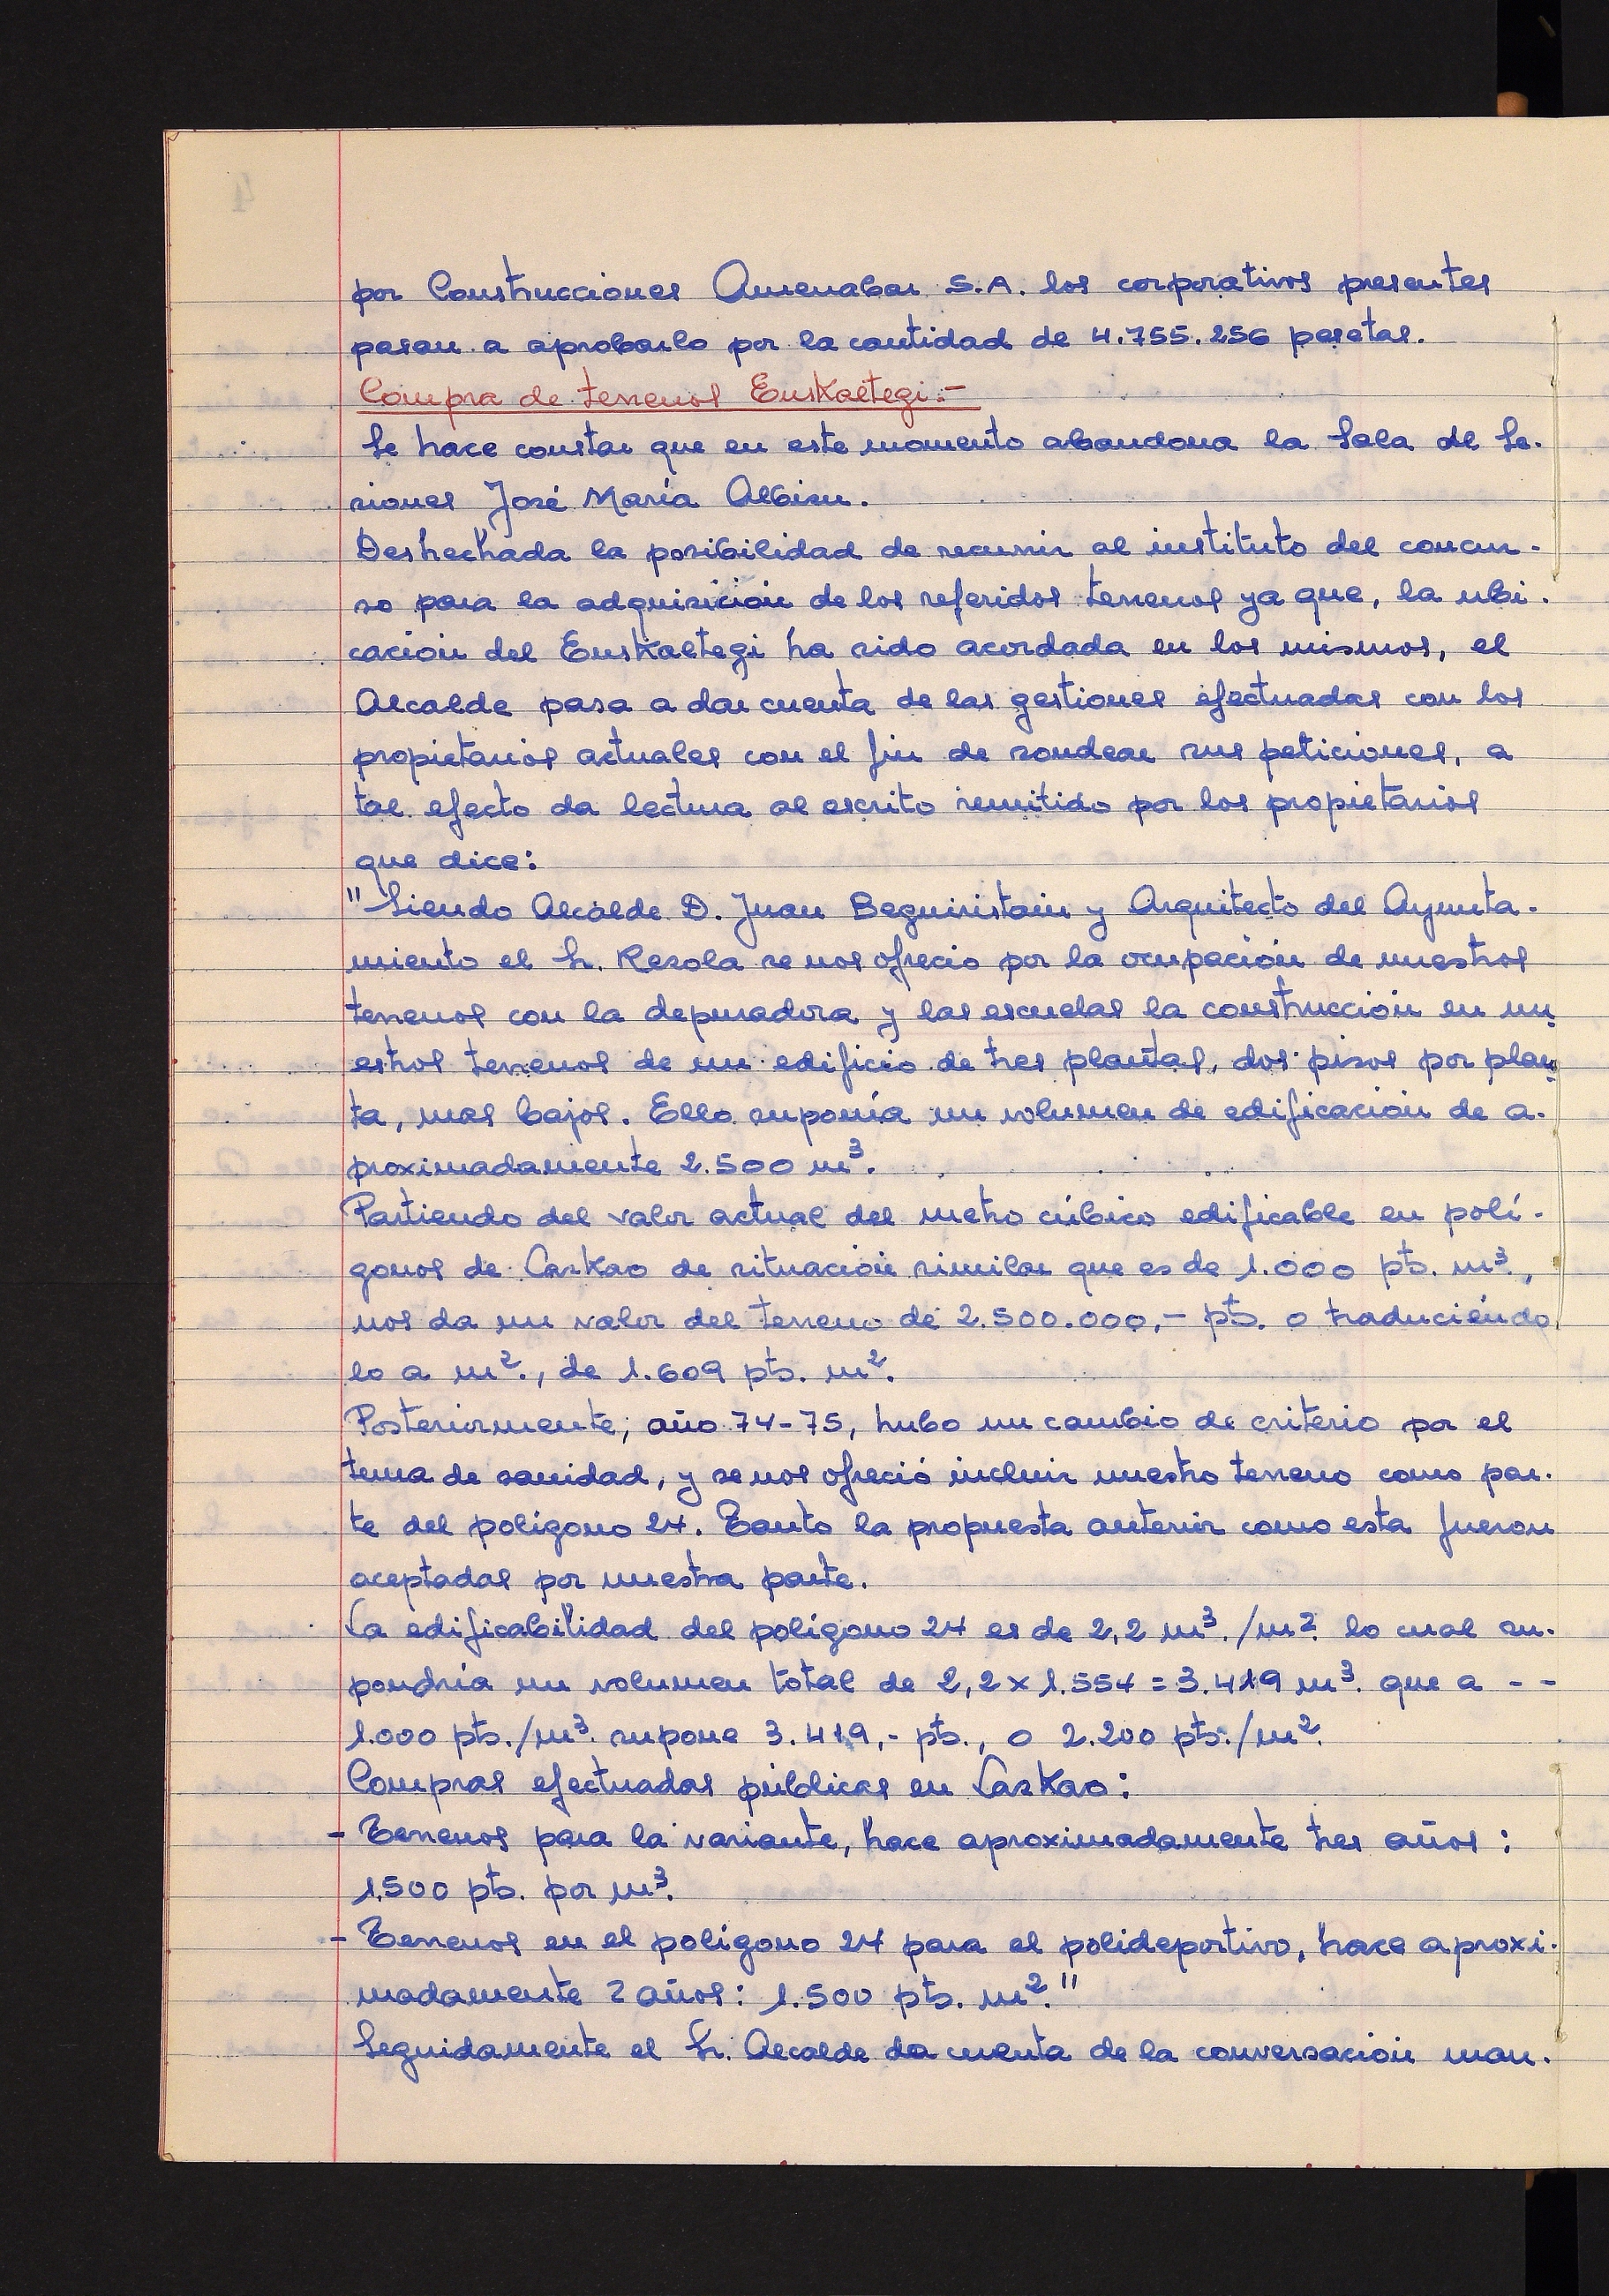 por Construcciones Amenabar S.A. los corporativos presentes
pasan a aprobarlo por la cantidad de 4.755.256 pesetas.
Compra de terrenos Euskaltegi.-
Se hace constar que en este momento abandona la Sala de Se-
siones José María Albisu.
Deshechada la posibilidad de recurrir al instituto del concur-
so para la adquisición de los referidos terrenos ya que, la ubi-
cación del Euskaltegi ha sido acordada en los mismos, el
Alcalde pasa a dar cuenta de las gestiones efectuadas con los
propietarios actuales con el fin de sondear sus peticiones, a
tal efecto da lectura al escrito remitido por los propietarios
que dice:
"Siendo Alcalde D. Juan Beguiristain y Arquitecto del Ayunta-
miento el Sr. Rezola se nos ofrecio por la ocupación de nuestros
terrenos con la depuradora y las escuelas la construcción en nu
estros terrenos de un edificio de tres plantas, dos pisos por plan
ta, mas bajos. Ello suponía un volumen de edificación de a-
proximadamente 2.500 m³.
Partiendo del valor actual del metro cúbico edificable en polí-
gonos de Lazkao de situación similar que es de 1.000 pts. m³.,
nos da un valor del terreno de 2.500.000,- pts. o traduciéndo
lo a m²., de 1.609 pts. m².
Posteriormente, año 74-75, hubo un cambio de criterio por el
tema de sanidad, y se nos ofreció incluir nuestro terreno como par-
te del poligono 24. Tanto la propuesta anterior como esta fueron
aceptadas por nuestra parte.
La edificabilidad del polígono 24 es de 2,2 m³./m². lo cual su-
pondría un volumen total de 2,2 x 1.554 = 3.419 m³. que a - -
1.000 pts./m³. supone 3.419,- pts., o 2.200 pts./m².
Compras efectuadas públicas en Lazkao:
- Terrenos para la variante, hace aproximadamente tres años:
1.500 pts. por m³.
- Terrenos en el polígono 24 para el polideportivo, hace aproxi-
madamente 2 años: 1.500 pts. m²."
Seguidamente el Sr. Alcalde da cuenta de la conversación man-